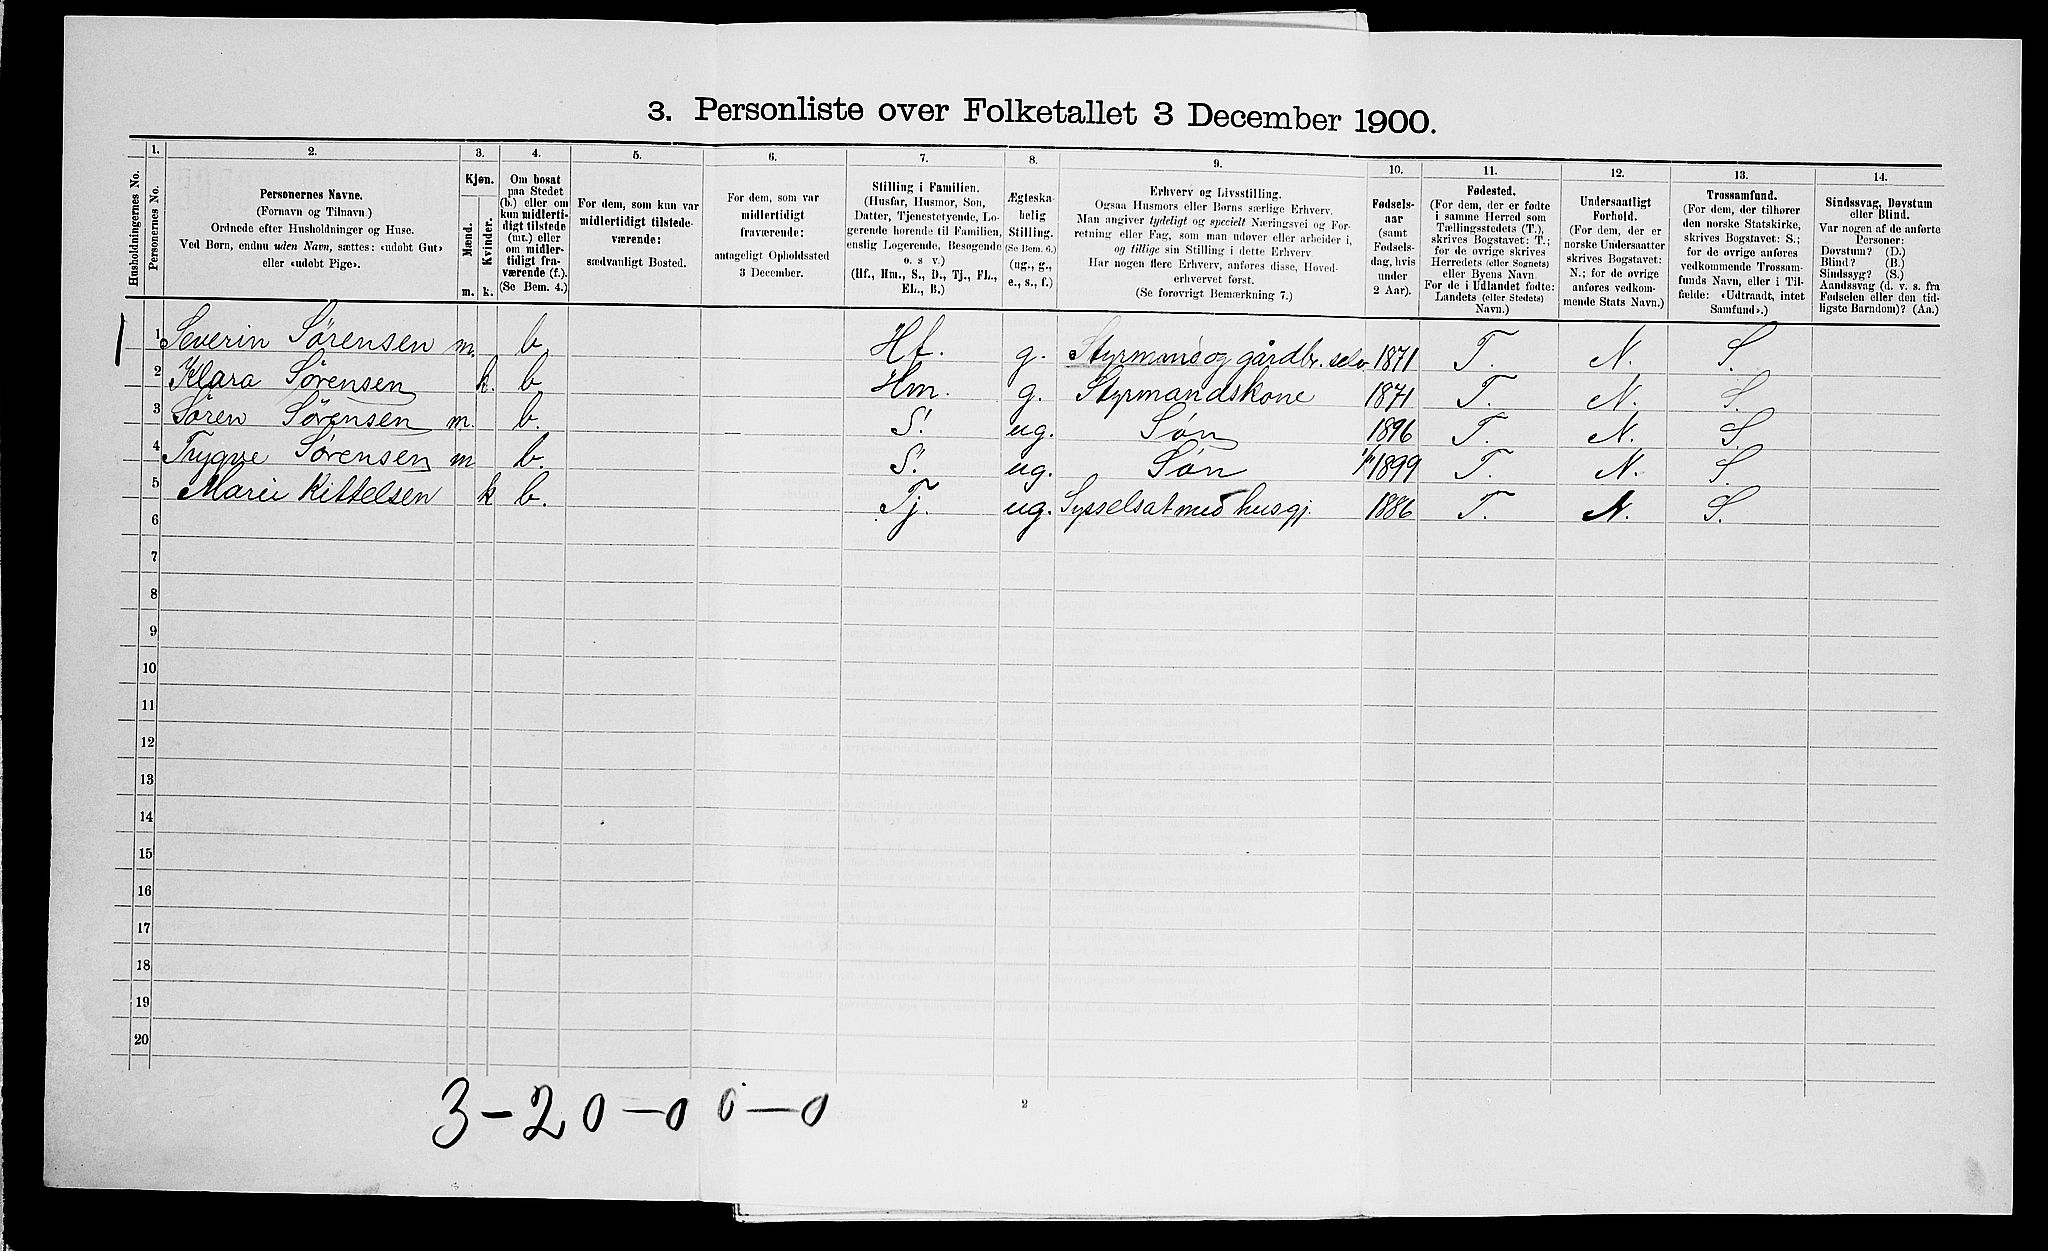 3. Personliste over Folketallet 3 December 1900.
Husholdningernes No.
1. Personernes No.
2. Personernes Navne.
(Fornavn og Tilnavn.)
Ordnede efter Husholdninger og Huse.
Ved Børn, endnu uden Navn, sættes: «udøbt Gut»
eller «udøbt Pige».
3. Kjøn.
Mænd. m.
Kvinder. k.
4. Om bosat
paa Stedet
(b.) eller om
kun midlerti-
digt tilstede
(mt.) eller
om midler-
tidigt fra-
værende (f.).
(Se Bem. 4.)
5. For dem, som kun var
midlertidigt tilstede-
værende:
sædvanligt Bosted.
6. For dem, som var
midlertidigt
fraværende:
antageligt Opholdssted
3 December.
7. Stilling i Familien.
(Husfar, Husmor, Søn,
Datter, Tjenestetyende, Lo-
gerende hørende til Familien,
enslig Logerende, Besøgende
o. s v.)
(Hf., Hm., S., D., Tj., FL.,
EL., B.)
8. Ægteska-
belig
Stilling.
(Se Bem. 6.)
(ug., g.,
e., s., f.)
9. Erhverv og Livsstilling.
Ogsaa Husmors eller Børns særlige Erhverv.
Man angiver tydeligt og specielt Næringsvei og For-
retning eller Fag, som man udøver eller arbeider i,
og tillige sin Stilling i dette Erhverv
Har nogen flere Erhverv, anføres disse, Hoved-
erhvervet først.
(Se forøvrigt Bemærkning 7.)
10. Fødsels-
aar
(samt
Fødsels-
dag, hvis
under
2 Aar).
11. Fødested.
(For dem, der er fødte
i samme Herred som
Tællingsstedets (T.),
skrives Bogstavet: T.;
for de øvrige skrives
Herredets (eller Sognets)
eller Byens Navn
For de i Udlandet fødte:
Landets (eller Stedets)
Navn.)
12. Undersaatligt
Forhold.
(For dem, der er
norske Undersaatter
skrives Bogstavet:
N.; for de øvrige
anføres vedkom-
mende Stats Navn.)
13. Trossamfund.
(For dem, der tilhører
den norske Statskirke,
skrives Bogstavet: S.;
for de øvrige anføres
vedkommende Trossam-
funds Navn, eller i Til-
fælde: «Udtraadt, intet
Samfund».)
14. Sindssvag, Døvstum
eller Blind.
Var nogen af de anførte
Personer:
Døvstum? (D.)
Blind? (B.)
Sindssyg? (S.)
Aandssvag (d. v. s. fra
Fødselen eller den tid-
ligste Barndom)? (Aa.)
1 Severin Sørensen m. b Hf. g. Styrmand og gårdbr. selv 1871 T. N. S.
2 Klara Sørensen k. b Hm. g. Styrmandskone 1871 T. N. S.
3 Sören Sørensen m. b. S. ug. Søn 1896 T. N. S.
4 Trygve Sørensen m b. S. ug. Søn 1899 T. N. S.
5 Marie Kittelsen k b. Tj. ug. Sysselsat med husgj. 1886 T. N. S.
6
7
8
9
10
11
12
13
14
15
16
17
18
19
20
3-20-00-0
2